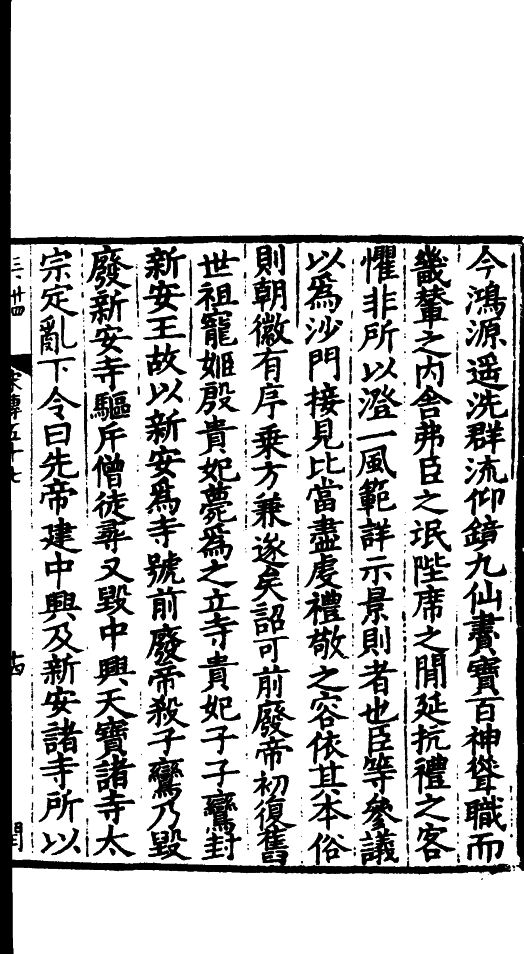 今鴻源遥洗群流仰鏡九仙賮寶百神聳職而
畿輦之内舍弗臣之氓陛席之間延抗禮之客
懼非所以澄一風範詳示景則者也臣等參議
以爲沙門接見比當盡虔禮敬之容依其本俗
則朝徽有序乗方兼遂矣詔可前廢帝初復舊
世祖寵姬殷貴妃薨爲之立寺貴妃子子鸞封
新安王故以新安爲寺號前廢帝殺子鸞乃毀
廢新安寺驅斥僧徒尋又毀中興天寶諸寺太
宗定亂下令曰先帝建中興及新安諸寺所以
宋傳五十七